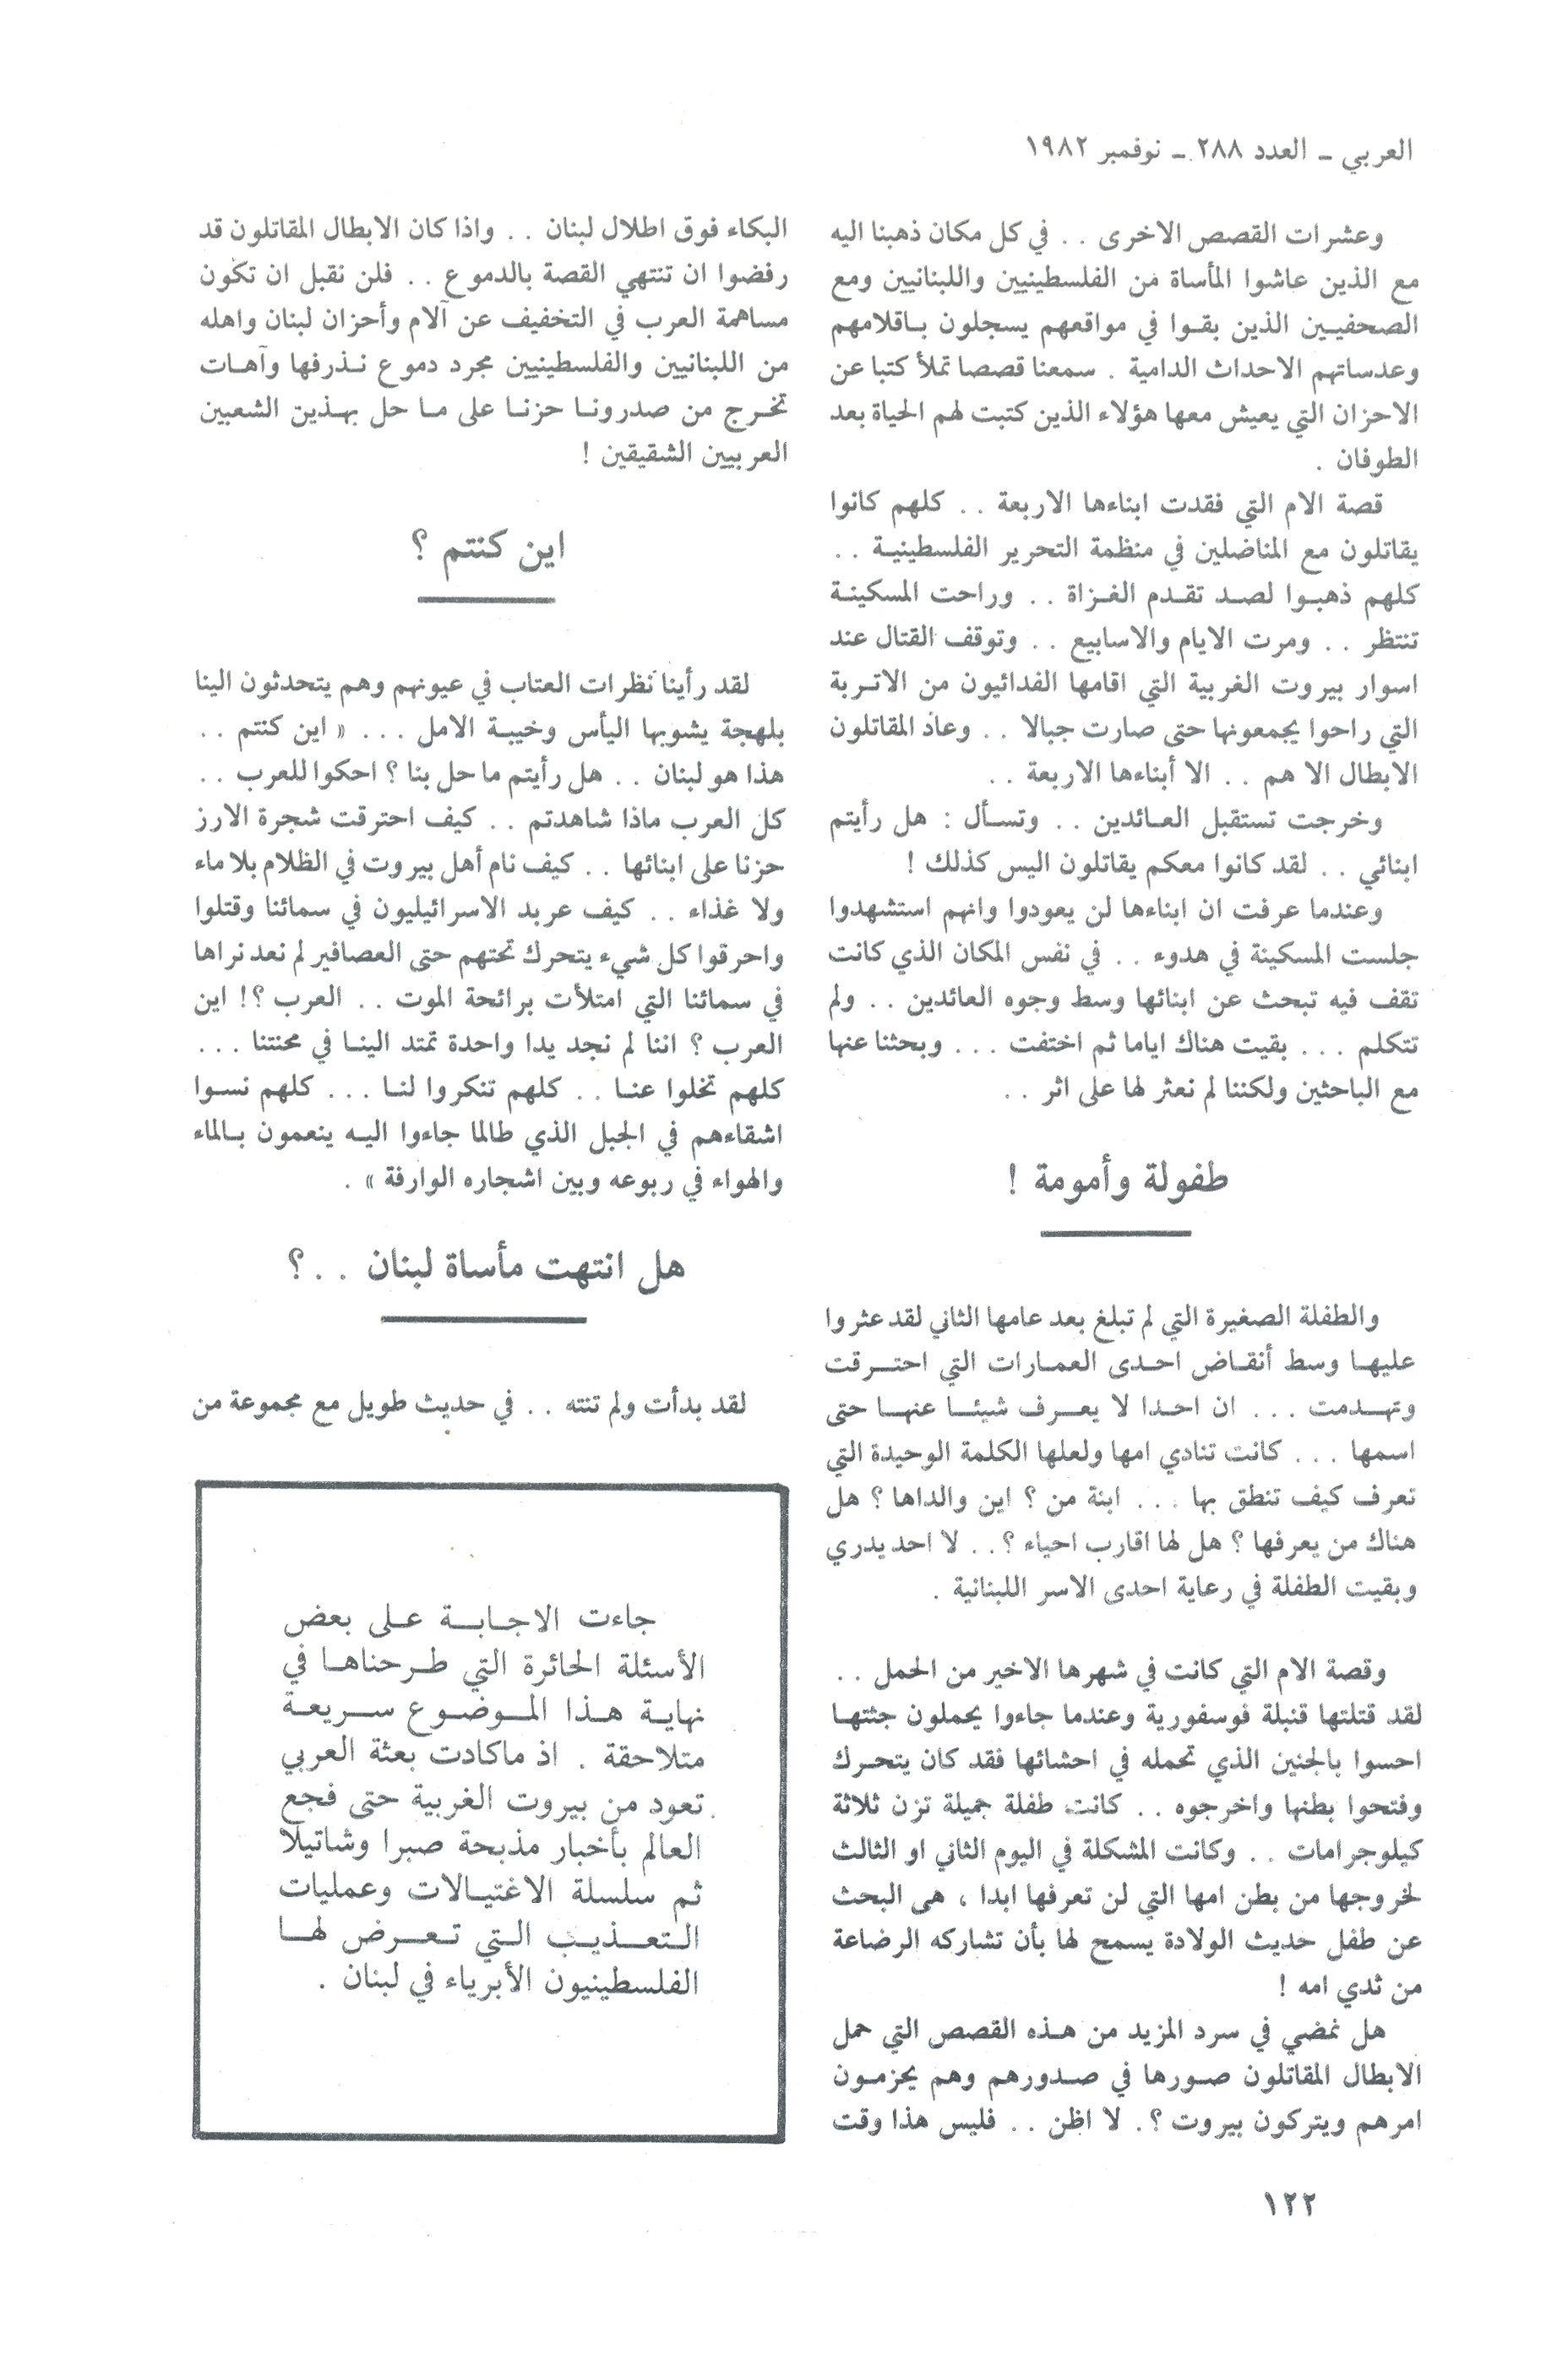 العربي ــ العدد ٢٨٨ ــ نوفمبر ١٩٨٢
وعشرات القصص الاخرى . . في كل مكان ذهبنا اليه
مع الذين عاشوا المأساة من الفلسطينيين واللبنانيين ومع
الصحفيين الذين بقوا في مواقعهم يسجلون باقلامهم
وعدساتهم الاحداث الدامية . سمعنا قصصا تملأ كتبا عن
الاحزان التي يعيش معها هؤلاء الذين كتبت لهم الحياة بعد
الطوفان .
قصة الام التي فقدت ابناءها الاربعة . . كلهم كانوا
يقاتلون مع المناضلين في منظمة التحرير الفلسطينية . .
كلهم ذهبوا لصد تقدم الغزاة . . وراحت المسكينة
تنتظر . . ومرت الايام والاسابيع . . وتوقف القتال عند
اسوار بيروت الغربية التي اقامها الفدائيون من الاتربة
التي راحوا يجمعونها حتى صارت جبالا . . وعاد المقاتلون
الابطال الا هم . . الا أبناءها الاربعة . .
وخرجت تستقبل العائدين . . وتسأل : هل رأيتم
ابنائي . . لقد كانوا معكم يقاتلون اليس كذلك !
وعندما عرفت ان ابناءها لن يعودوا وانهم استشهدوا
جلست المسكينة في هدوء . . في نفس المكان الذي كانت
تقف فيه تبحث عن ابنائها وسط وجوه العائدين . . ولم
تتكلم . . . بقيت هناك اياما ثم اختفت . . . وبحثنا عنها
مع الباحثين ولكننا لم نعثر لها على اثر . .
طفولة وأمومة !
والطفلة الصغيرة التي لم تبلغ بعد عامها الثاني لقد عثروا
عليها وسط أنقاض احدى العمارات التي احترقت
وتهدمت . . . ان احدا لا يعرف شيئا عنها حتى
اسمها . . . كانت تنادي امها ولعلها الكلمة الوحيدة التي
تعرف كيف تنطق بها . . . ابنة من ؟ اين والداها ؟ هل
هناك من يعرفها ؟ هل لها اقارب احياء ؟ . . لا احد يدري
وبقيت الطفلة في رعاية احدى الاسر اللبنانية .
وقصة الام التي كانت في شهرها الاخير من الحمل . .
لقد قتلتها قنبلة فوسفورية وعندما جاءوا يحملون جثتها
احسوا بالجنين الذي تحمله في احشائها فقد كان يتحرك
وفتحوا بطنها واخرجوه . . كانت طفلة جميلة تزن ثلاثة
كيلوجرامات . . وكانت المشكلة في اليوم الثاني او الثالث
لخروجها من بطن امها التي لن تعرفها ابدا ، هى البحث
عن طفل حديث الولادة يسمح لها بأن تشاركه الرضاعة
من ثدي امه !
هل نمضي في سرد المزيد من هذه القصص التي حمل
الابطال المقاتلون صورها في صدورهم وهم يحزمون
امرهم ويتركون بيروت ؟ . لا اظن . . فليس هذا وقت
البكاء فوق اطلال لبنان . . واذا كان الابطال المقاتلون قد
رفضوا ان تنتهي القصة بالدموع . . فلن نقبل ان تكون
مساهمة العرب في التخفيف عن آلام وأحزان لبنان واهله
من اللبنانيين والفلسطينيين مجرد دموع نذرفها وآهات
تخرج من صدرونا حزنا على ما حل بهذين الشعبين
العربيين الشقيقين !
اين كنتم ؟
لقد رأينا نظرات العتاب في عيونهم وهم يتحدثون الينا
بلهجة يشوبها اليأس وخيبة الامل . . . « اين كنتم . .
هذا هو لبنان . . هل رأيتم ما حل بنا ؟ احكوا للعرب . .
كل العرب ماذا شاهدتم . . كيف احترقت شجرة الارز
حزنا على ابنائها . . كيف نام أهل بيروت في الظلام بلا ماء
ولا غذاء . . كيف عربد الاسرائيليون في سمائنا وقتلوا
واحرقوا كل شيء يتحرك تحتهم حتى العصافير لم نعد نراها
في سمائنا التي امتلأت برائحة الموت . . العرب ؟! اين
العرب ؟ اننا لم نجد يدا واحدة تمتد الينا في محنتنا . . .
كلهم تخلوا عنا . . كلهم تنكروا لنا . . . كلهم نسوا
اشقاءهم في الجبل الذي طالما جاءوا اليه ينعمون بالماء
والهواء في ربوعه وبين اشجاره الوارفة » .
هل انتهت مأساة لبنان . . ؟
لقد بدأت ولم تنته . . في حديث طويل مع مجموعة من
جاءت الاجابة على بعض
الأسئلة الحائرة التي طرحناها في
نهاية هذا الموضوع سريعة
متلاحقة . اذ ماكادت بعثة العربي
تعود من بيروت الغربية حتى فجع
العالم بأخبار مذبحة صبرا وشاتيلا
ثم سلسلة الاغتيالات وعمليات
التعذيب التي تعرض لها
الفلسطينيون الأبرياء في لبنان .
١٢٢